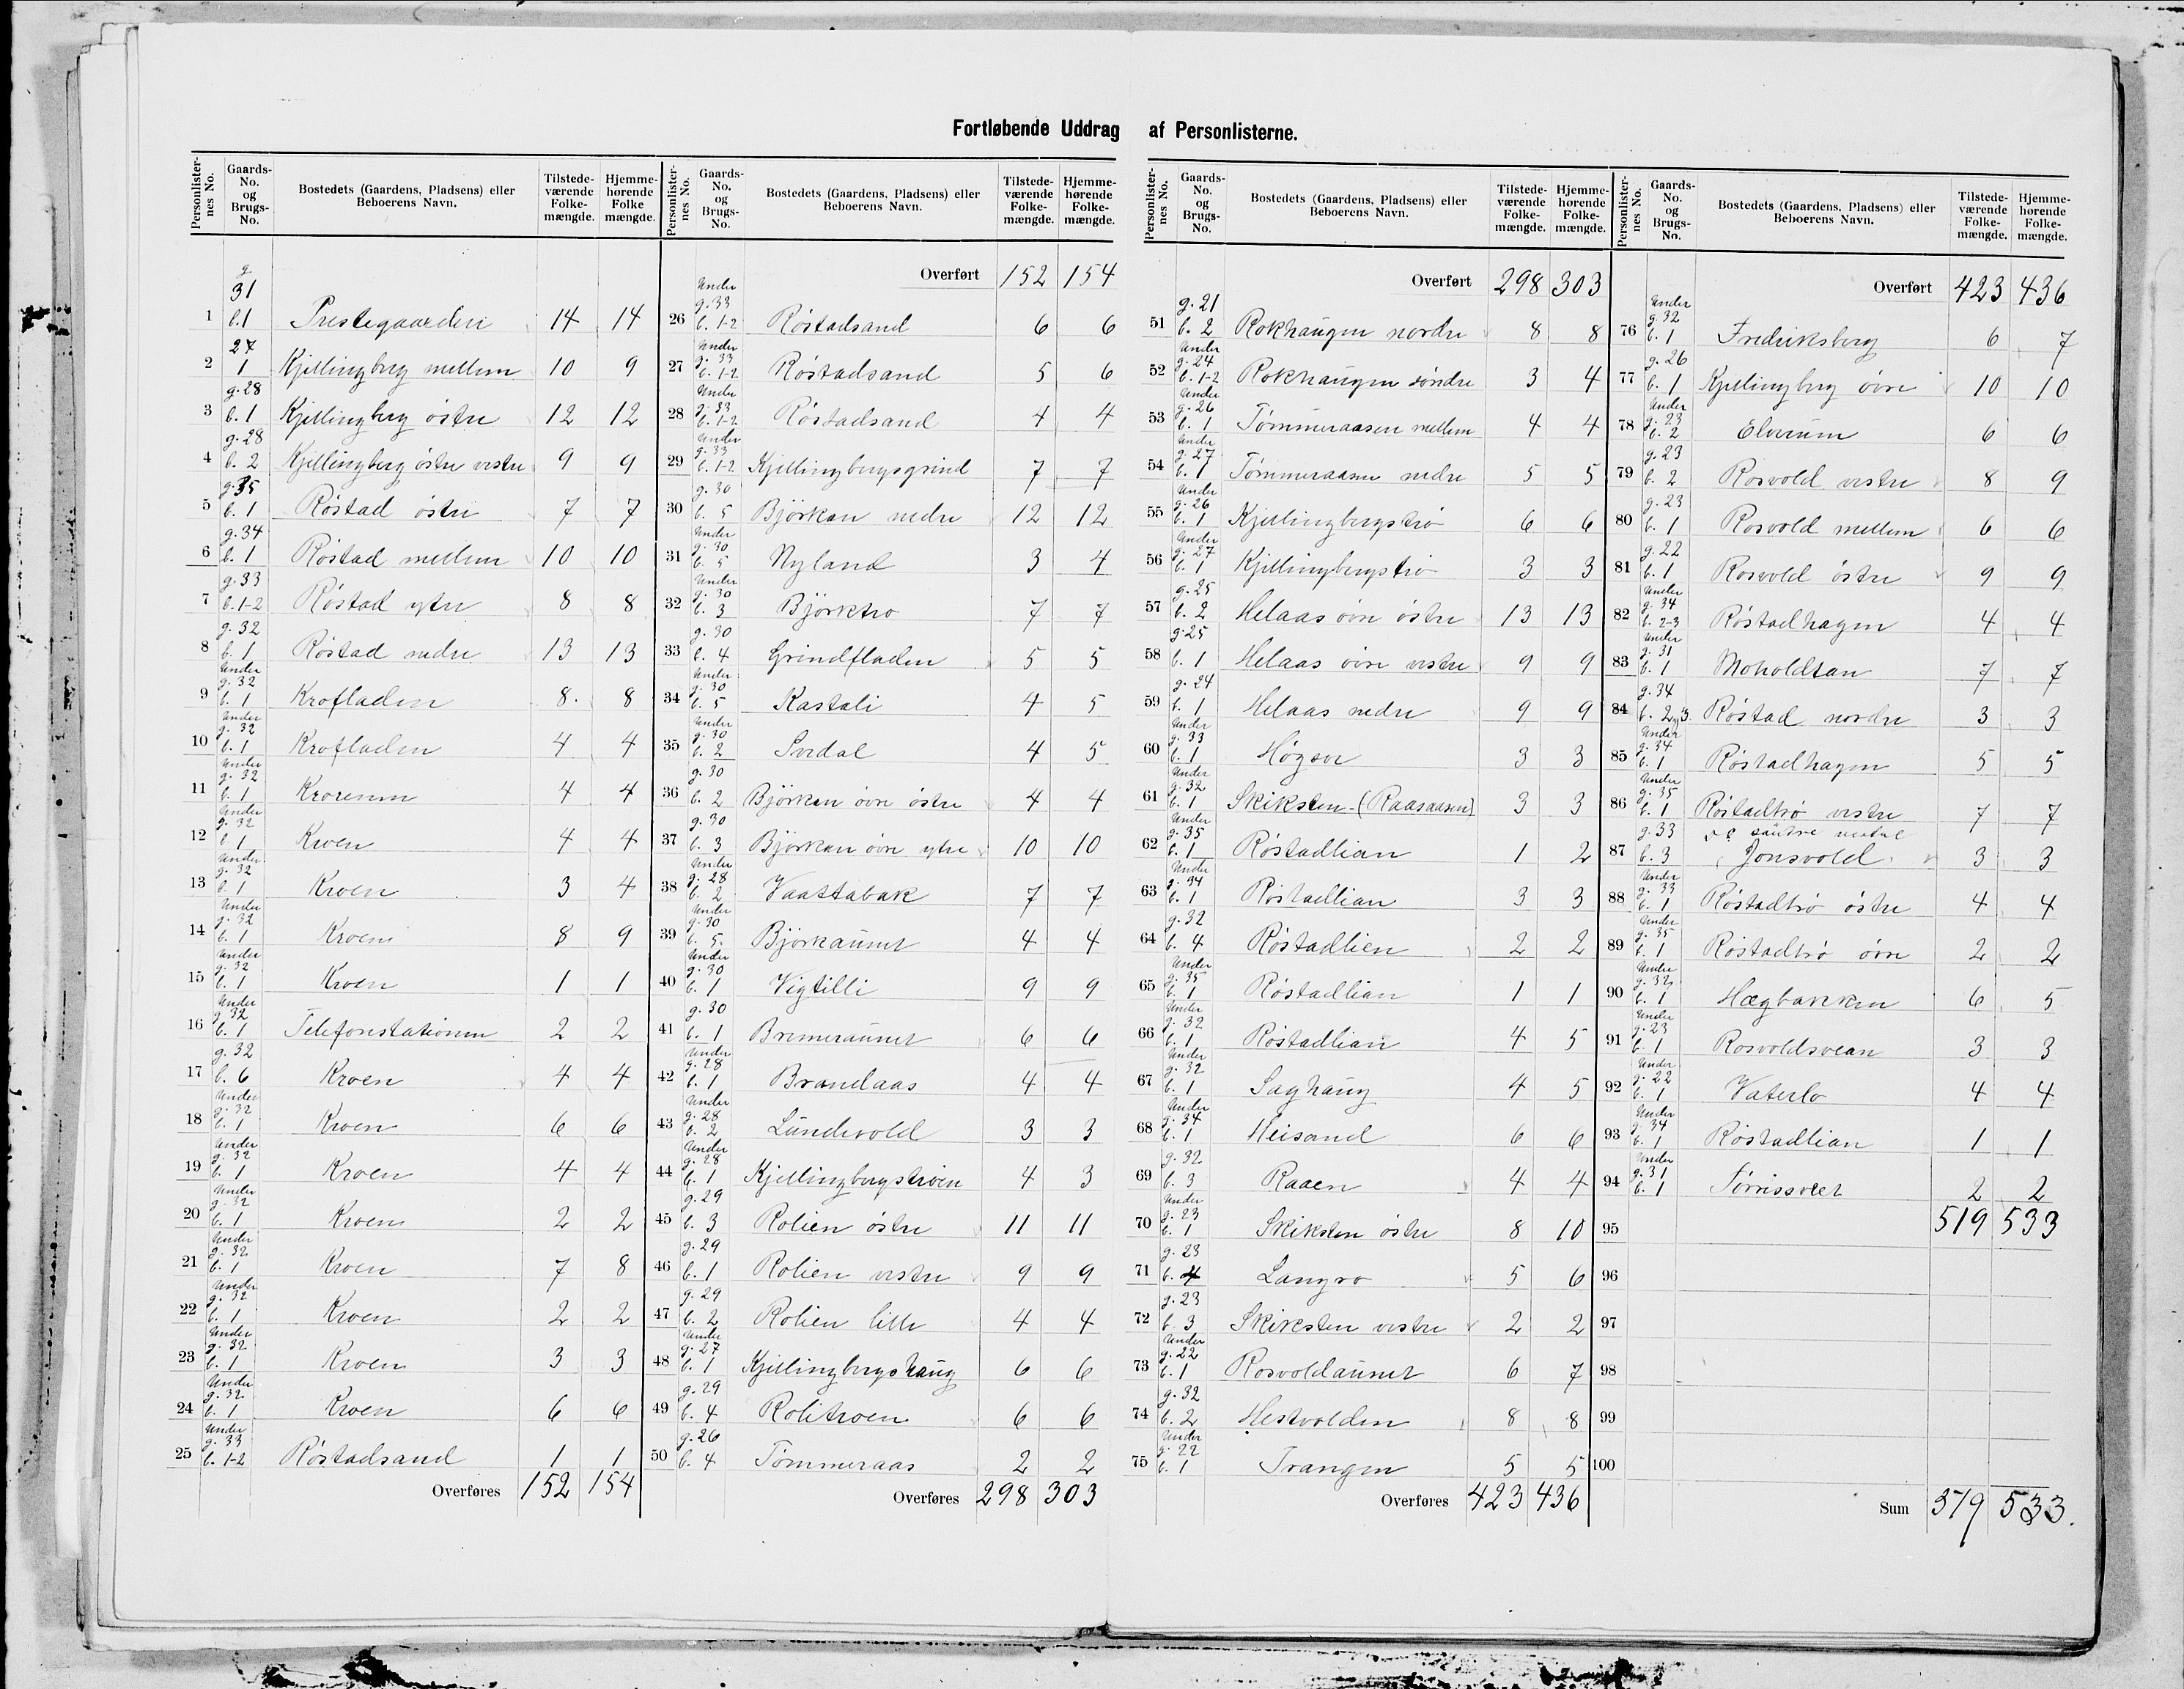 Fortløbende Uddrag af Personlisterne.
Personlister-nes No. Gaards-No. og Brugs-No. Bostedets (Gaardens, Pladsens) eller Beboerens Navn. Tilstede-værende Folke-mængde. Hjemme-hørende Folke mængde.
g 31
1 b.1 Prestegaarden 14 14
27
2 1 Kjellingberg mellem 10 9
g.28
3 b.1 Kjellingberg östre 12 12
g.28
4 b.2 Kjellingberg östre vestre 9 9
g.35
5 b.1 Röstad östre 7 7
g.34
6 b.1 Röstad mellem 10 10
g.33
7 b.1-2 Röstad ytre 8 8
g.32
8 b.1 Röstad nedre 13 13
Under g.32
9 b.1 Krofladen 8. 8
Under g.32
10 b.1 Krofladen 4 4
Under g.32
11 b.1 Kroremm 4 4
Under g.32
12 b.1 Kroen 4 4
Under g.32
13 b.1 Kroen 3 4
Under g.32
14 b.1 Kroen 8 9
Under g.32
15 b.1 Kroen 1 1
Under g.32
16 b.1 Telefonstationen 2 2
g.32
17 b.6 Kroen 4 4
Under g.32
18 b.1 Kroen 6 6
Under g.32
19 b.1 Kroen 4 4
Under g.32
20 b.1 Kroen 2 2
Under g.32
21 b.1 Kroen 7 8
Under g.32
22 b.1 Kroen 2 2
Under g.32
23 b.1 Kroen 3 3
Under g.32
24 b.1 Kroen 6 6
Under g.33
25 b.1-2 Röstadsand 1 1
Overføres 152 154
Personlister-nes No. Gaards-No. og Brugs-No. Bostedets (Gaardens, Pladsens) eller Beboerens Navn. Tilstede-værende Folke-mængde. Hjemme-hørende Folke-mængde.
Overført 152 154
Under g.33
26 b.1-2 Röstadsand 6 6
Under g.33
27 b.1-2 Röstadsand 5 6
Under g.33
28 b.1-2 Röstadsand 4 4
Under g.33
29 b.1-2 Kjellingbergsgrind 7 7
g.30
30 b.5 Björkan nedre 12 12
Under g.30
31 b.5 Nyland 3 4
Under g.30
32 b.3 Björktro 7 7
g.30
33 b.4 Grindfladen 5 5
Under g.30
34 b.5 Kastali 4 5
Under g.30
35 b.2 Svedal 4 5
g.30
36 b.2 Björkan övre östre 4 4
g.30
37 b.3 Björkan övre ytre 10 10
Under g.28
38 b.2 Vaattabak 7 7
Under g.30
39 b.5. Björkaunet 4 4
Under g.30
40 b.1 Vigtilli 9 9
g.30
41 b.1 Bremeraunet 6 6
Under g.28
42 b.1 Brandaas 4 4
Under g.28
43 b.2 Lündevold 3 3
Under g.28
44 b.1 Kjellingbergströen 4 3
g.29
45 b.3 Rolien östre 11 11
g.29
46 b.1 Rolien vestre 9 9
g.29
47 b.2 Rolien lille 4 4
Under g.27
48 b.1 Kjellingbergshaug 6 6
g.29
49 b.4 Rolitroen 6 6
g.26
50 b.4 Tømmeraas 2 2
Overføres 298 303
Personlister-nes No. Gaards-No. og Brugs-No. Bostedets (Gaardens, Pladsens) eller Beboerens Navn. Tilstede-værende Folke-mængde. Hjemme-hørende Folke-mængde.
Overført 298 303
g.21
51 b.2 Rokhaugen nordre 8 8
Under g.24
52 b.1-2 Rokhaugen söndre 3 4
Under g.26
53 b.1 Tømmeraasen mellem 4 4
Under g.27
54 b.1 Tømmeraasen nedre 5 5
Under g.26
55 b.1 Kjellingbergströ 6 6
Under g.27
56 b.1 Kjellingbergströ 3 3
g.25
57 b.2 Helaas övre östre 13 13
g.25
58 b.1 Helaas övre vestre 9 9
g.24
59 b.1 Helaas nedre 9 9
Under g.33
60 b.1 Högsve 3 3
Under g.32
61 b.1 Skiksten-(Raasaasen) 3 3
Under g.35
62 b.1 Röstadlian 1 2
Under g.34
63 b.1 Röstadlian 3 3
g.32
64 b.4 Röstadlien 2 2
Under g.35
65 b.1 Röstadlian 1 1
Under g.32
66 b.1 Röstadlian 4 5
Under g.32
67 b.1 Saghaug 4 5
Under g.34
68 b.1 Heisand 6 6
g.32
69 b.3 Raaen 4 4
Under g.23
70 b.1 Skiksten östre 8 10
g.23
71 b.4 Langro 5 6
g.23
72 b.3 Skiksten vestre 2 2
Under g.22
73 b.1 Rosvoldaunet 6 7
g.32
74 b.2 Hestvolden 8 8
Under g.22
75 b.1 Trangen 5 5
Overføres 423 436
Personlister-nes No. Gaards-No. og Brugs-No. Bostedets (Gaardens, Pladsens) eller Beboerens Navn. Tilstede-værende Folke-mængde. Hjemme-hørende Folke-mængde.
Overført 423 436
Under g.32
76 b.1 Fredriksberg 6 7
g.26
77 b.1 Kjellingberg övre 10 10
Under g.23
78 b.2 Elverum 6 6
g.23
79 b.2 Rosvold vestre 8 9
g.23
80 b.1 Rosvold mellem 6 6
g.22
81 b.1 Rosvold östre 9 9
Under g.34
82 b.2-3 Röstadhagen 4 4
Under g.31
83 b.1 Moholdtan 7 7
g.34
84 b.2 og 3. Röstad nordre 3 3
Under g.34
85 b.1 Röstadhagen 5 5
Under g.35
86 b.1 Röstadtrö vestre 7 7
g.33 söndre
87 b.3 Jonsvold 3 3
Under g.33
88 b.1 Röstadtrö östre 4 4
Under g.35
89 b.1 Röstadtrö övre 2 2
Under g.32
90 b.1 Hægbakken 6 5
Under g.23
91 b.1 Rosvoldsvean 3 3
Under g.22
92 b.1 Vaterlo 4 4
Under g.34
93 b.1 Röstadlian 1 1
Under g.31
94 b.1 2 2
95 519 533
96
97
98
99
100
Sum 519 533.